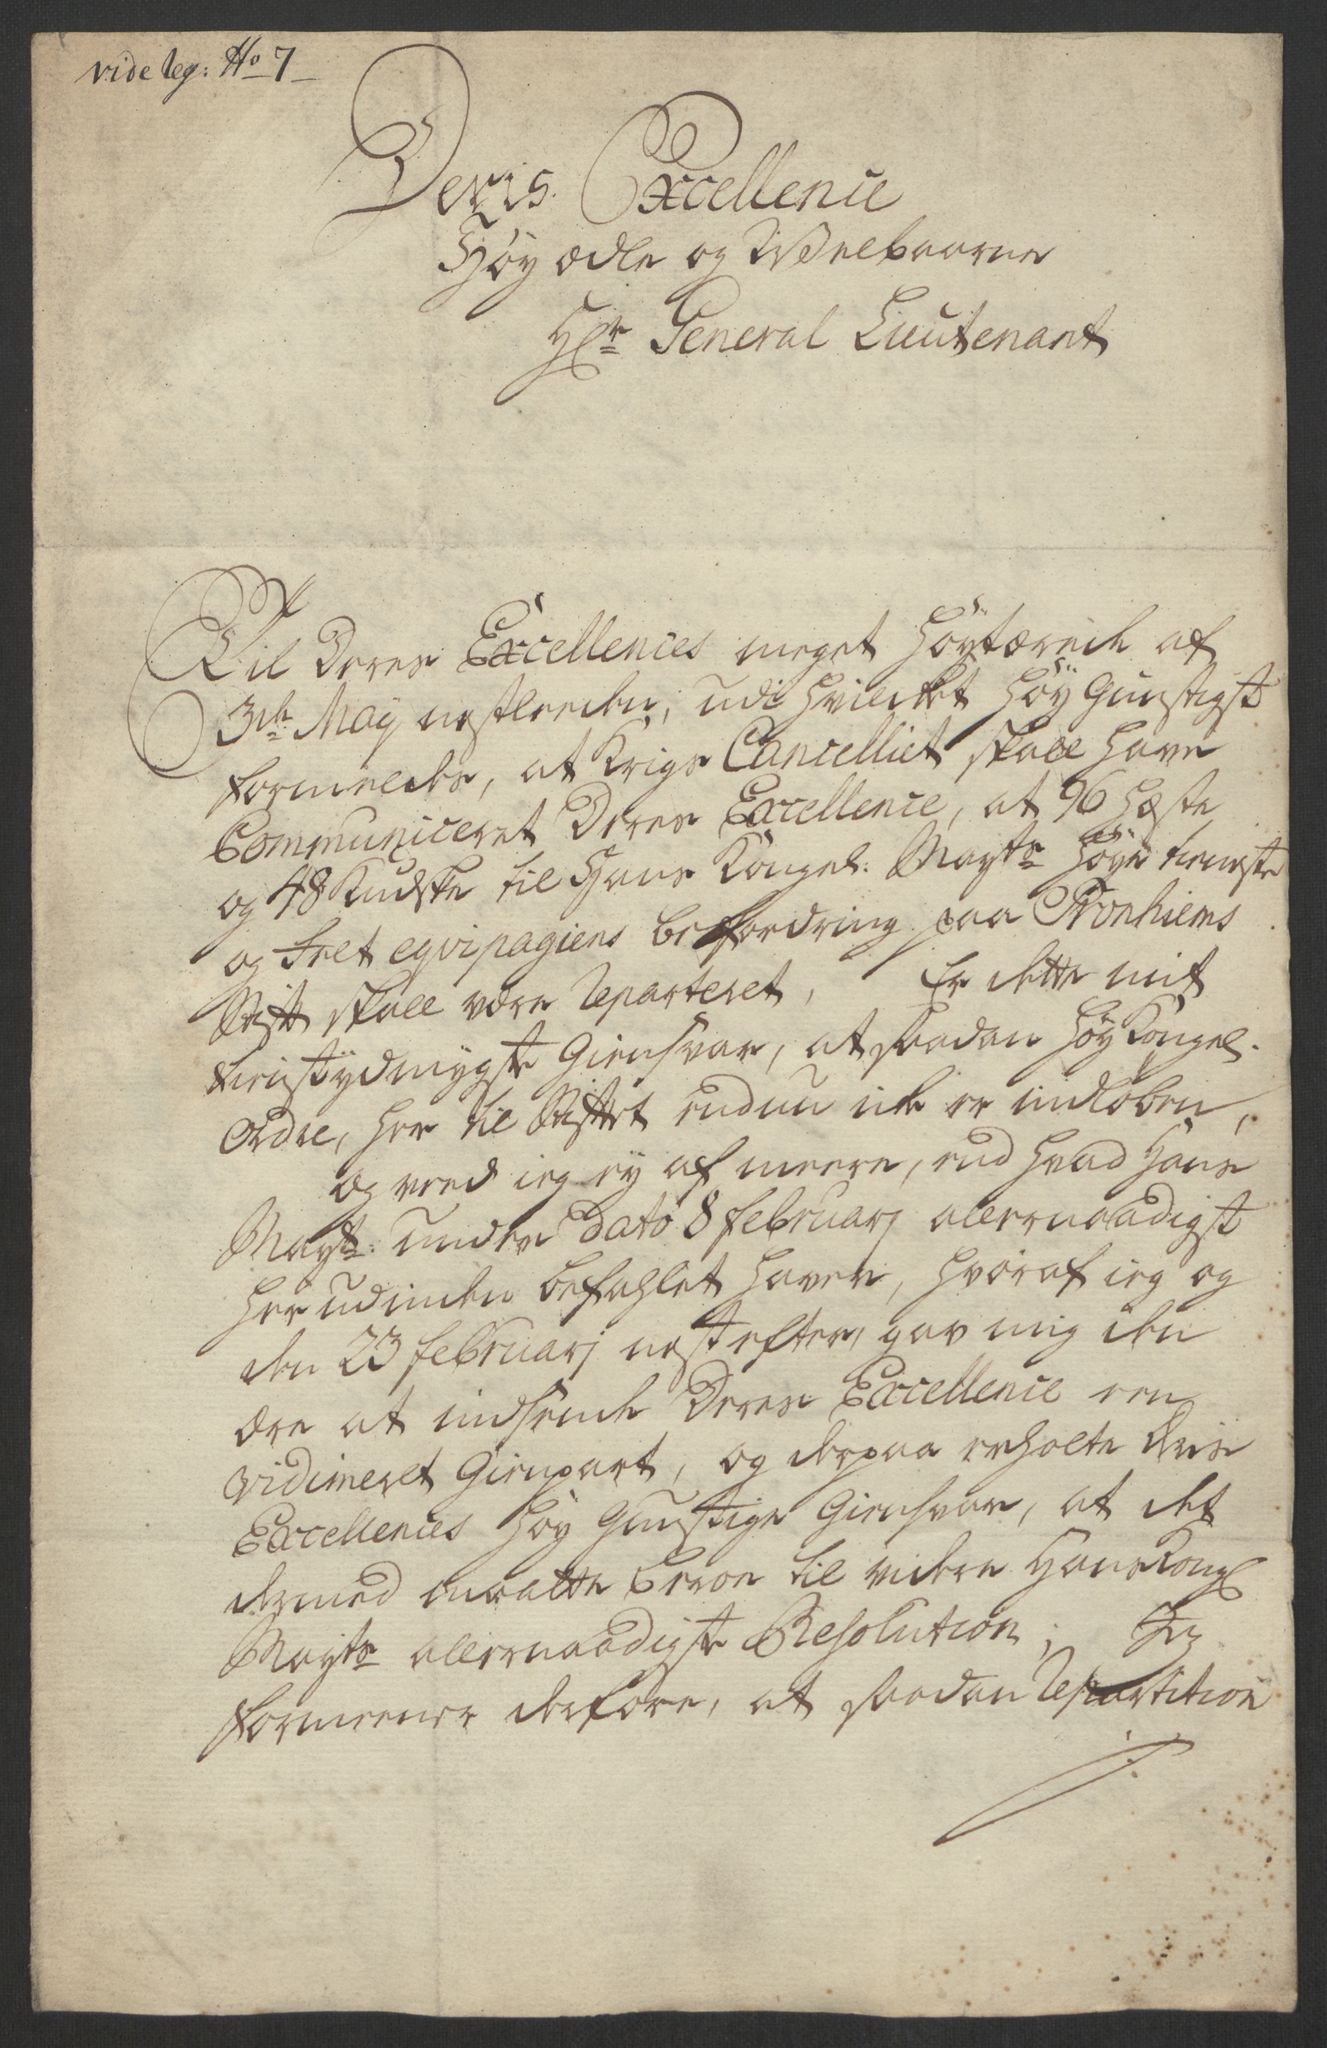 vide reg: No 7
Deris Excellence
Høy ædle og Welbaarne
Hr General Lieutenant
Til Deres Excellences meget høytærede af
3de Maij nestleeden, udi hvilcket høy gunstigst
formeldes, at Krigs Cancelliet skall have
Communiceret Deres Excellence, at 96 hæste
og 48 Kudske til Hans Kongel: Mayts høye tieneste
og Felt eqvipagiens befordring paa Tronhiems
Stift skall være reparteret, Er dette mit
tienstydmygste Giensvar, at saadan høy Kongel.
Ordre, her til Stiftet endnu icke er indløben,
og veed ieg ey af meere, end hvad Hans
Mayt: under dato 8 februarj allernaadigst
herudinden befahlet haver, hvoraf ieg og
den 23 februarj nest efter, gav mig den
ære at indsende Deres Excellence een
vidimeret Gienpart, og derpaa erholte Deris
Excellences høy gunstige Giensvar, at det
dermed maatte beroe til videre Hans Kongl
Mayts allernaadigste Resolution; Jeg
formeener derfore, at saadan Repartition